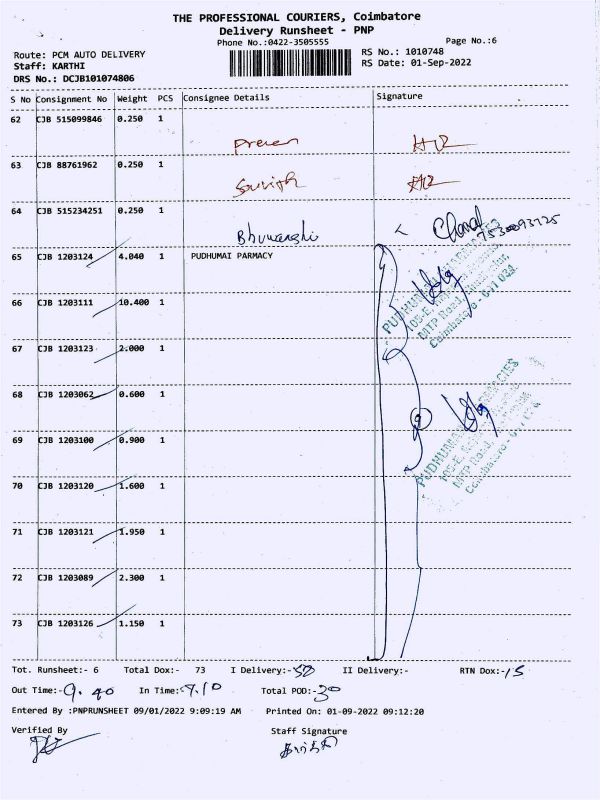 THE PROFESSIONAL COURIERS, Coimbatore
Delivery Runsheet - PNP
Phone No.:0422-3505555
Page No.:6
Route: PCM AUTO DELIVERY
RS No.: 1010748
Staff: KARTHI
RS Date: 01-Sep-2022
DRS No.: DCJB101074806
S No Consignment No Weight PCS Consignee Details Signature
62 CJB 515099846 0.250 1
63 CJB 88761962 0.250 1
64 CJB 515234251 0.250 1
65 CJB 1203124 4.040 1 PUDHUMAI PARMACY
66 CJB 1203111 10.400 1
67 CJB 1203123 2.000 1
68 CJB 1203062 0.600 1
69 CJB 1203100 0.900 1
70 CJB 1203120 1.600 1
71 CJB 1203121 1.950 1
72 CJB 1203089 2.300 1
73 CJB 1203126 1.150 1
Tot. Runsheet:- 6 Total Dox:- 73 I Delivery:-58 II Delivery:- RTN Dox:-15
Out Time:-9.40 In Time:-7.10 Total POD:-30
Entered By :PNPRUNSHEET 09/01/2022 9:09:19 AM Printed On: 01-09-2022 09:12:20
Verified By Staff Signature